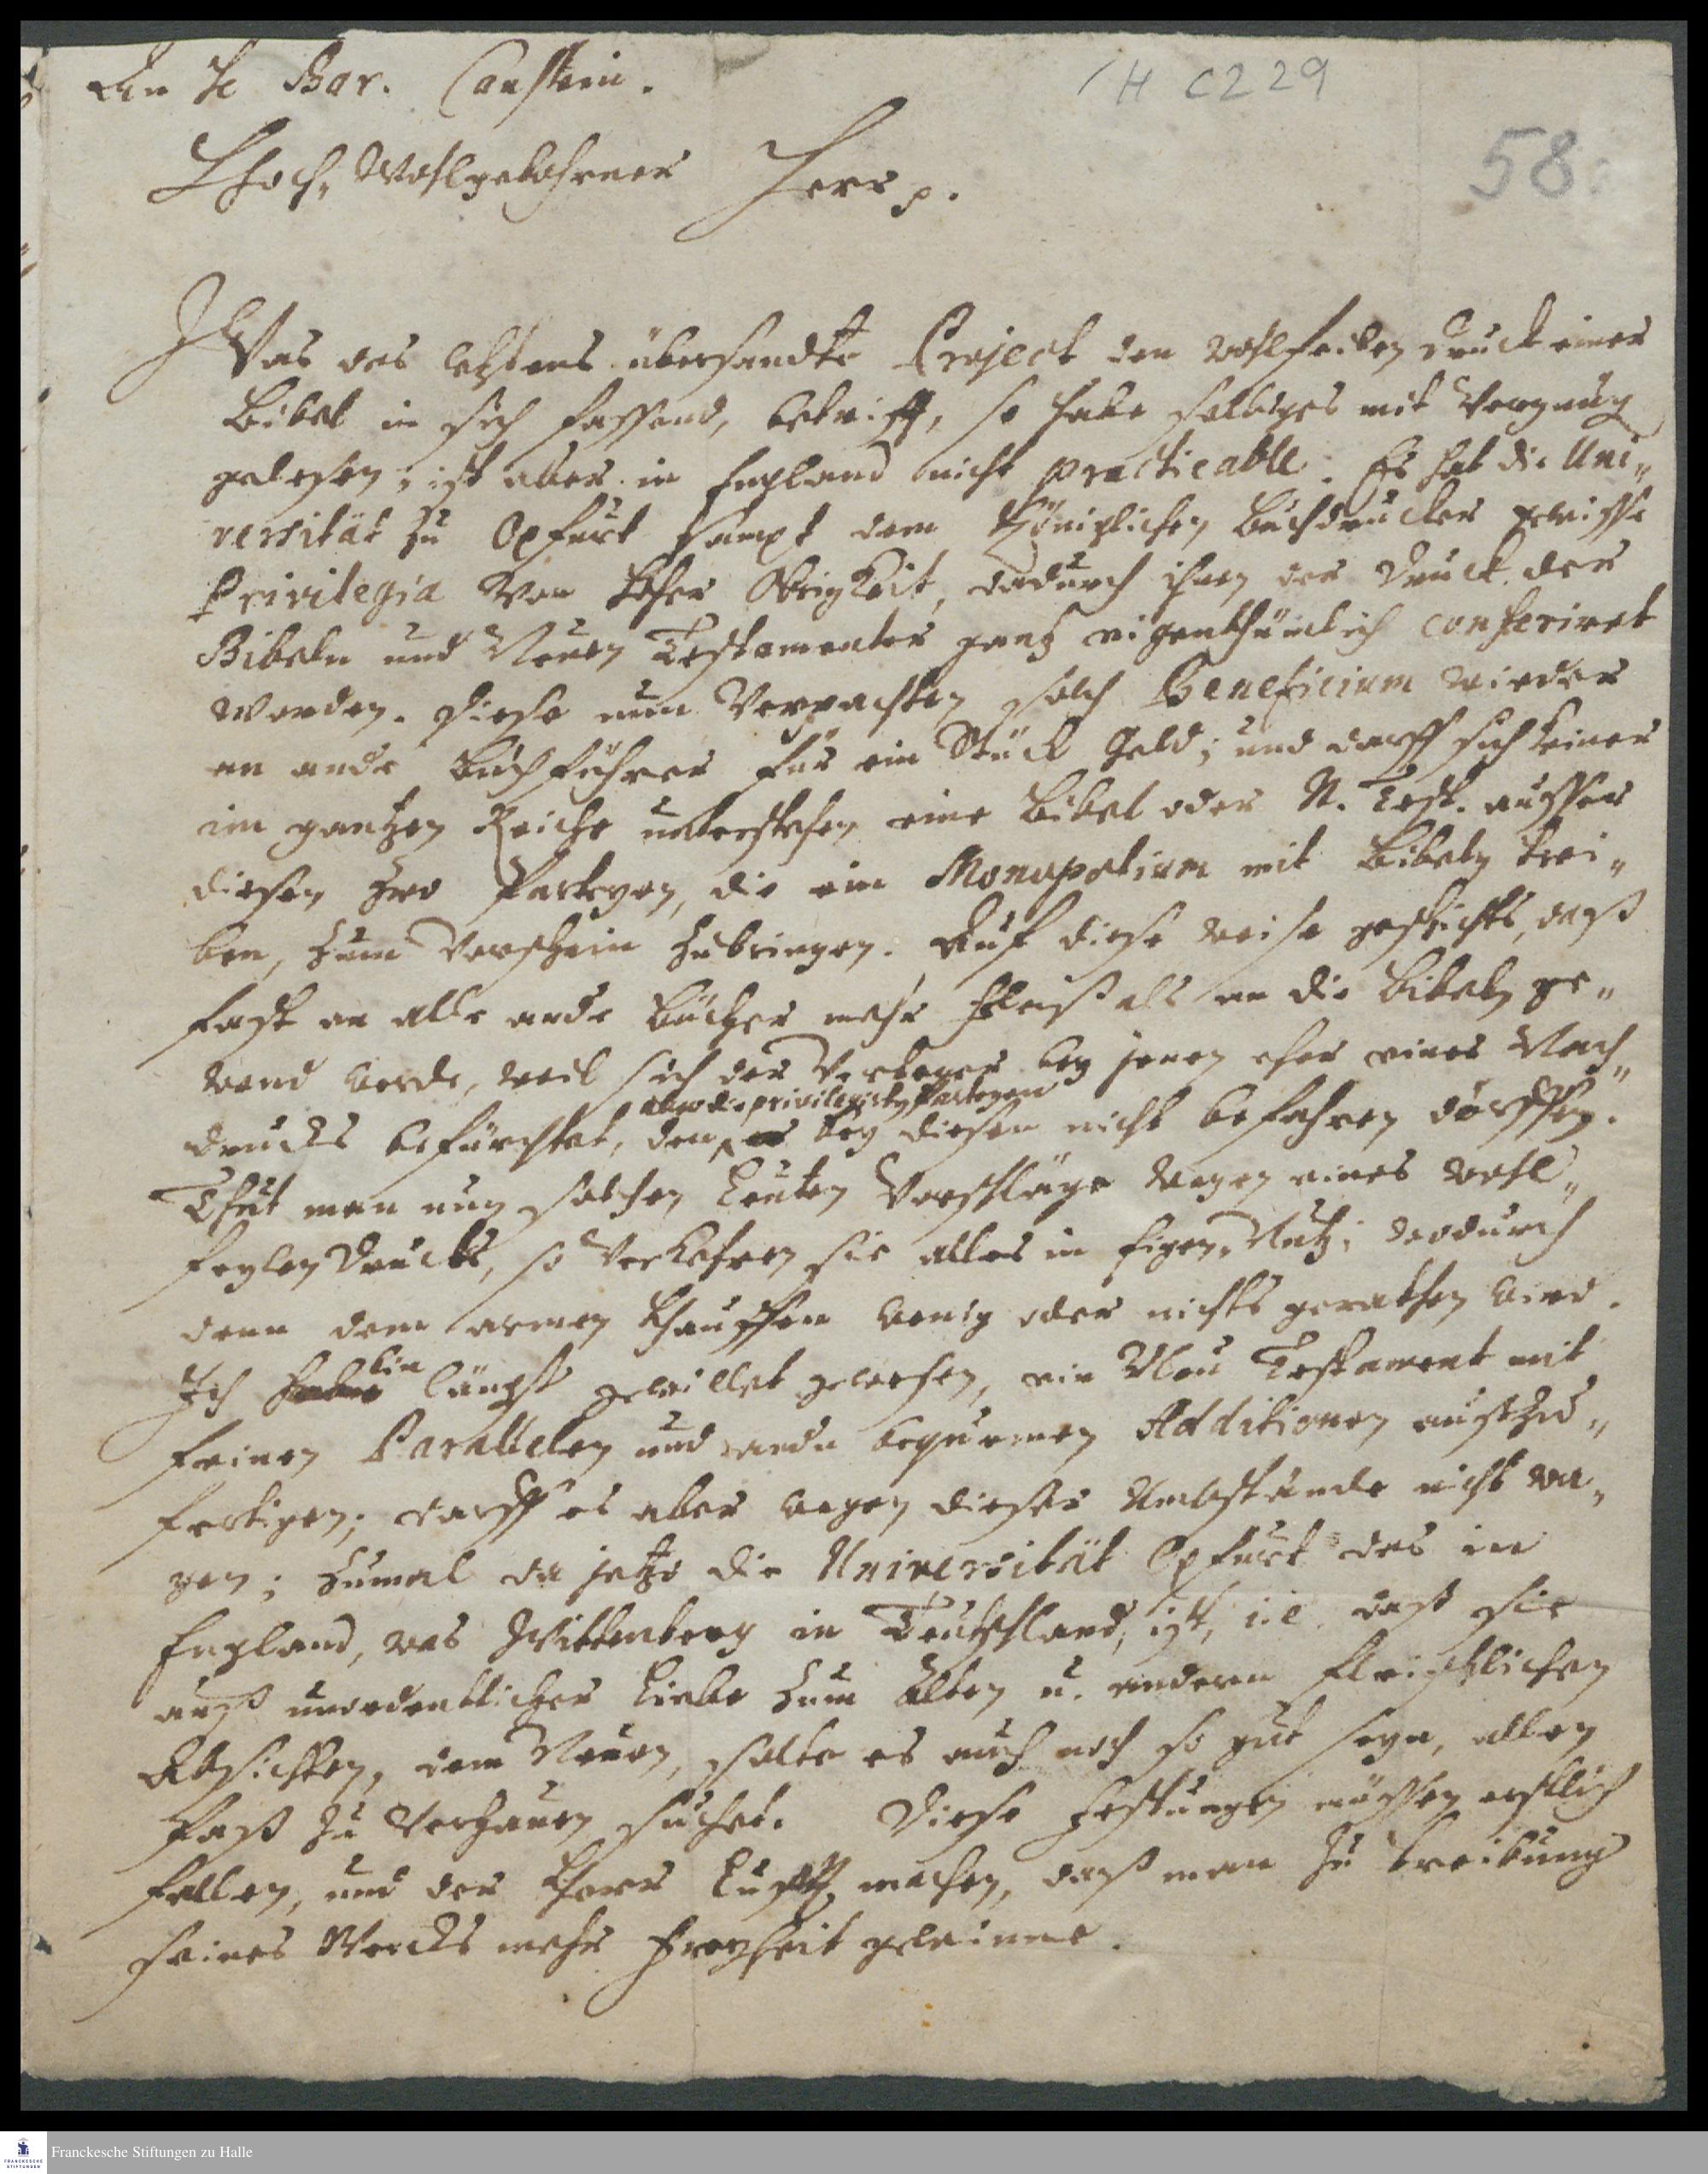 An H Bar. Canstein.
H C229
58.
Hoch, Wohlgebohrner Herr p.
Was das letztens übersandte Project den wohlfeilen Druck einer
Bibel in sich fassend, betrifft, so habe selbiges mit Vergnüg
gelesen; ist aber in England nicht practicable. Es hat die Uni„
versität zu Oxfurt sampt dem Königlichen Buchdrucker gewisse
Privilegia von hoher Obrigkeit, dadurch ihnen der Druck der
Bibeln und Neuen Testamenter gantz eigenthümlich conferiret
worden. Diese nun verpachten solch Beneficium wieder
an andre Buchführer für ein Stück Geld; und darff sich keiner
im gantzen Reiche unterstehen eine Bibel oder N. Test. ausser
diesen zwo Parteyen, die ein Monopolium mit Bibeln trei„
ben, zum Vorschein zubringen. Auf diese weise geschichts, daß
fast an alle andre Bücher mehr Fleiß als an die Bibeln ge„
wand werde, weil sich der Verleger bey jenen eher eines Nach„
drucks befürchtet, den aber die privilegirte Parteyen bey diesen nicht befahren dörffen.
Thut man nun solchen Leuten Vorschläge wegen eines wohl„
feylen Drucks, so verkehren sie alles in Eigen„Nutz; wodurch
denn dem armen Hauffen wenig oder nichts gerathen wird.
Ich bin längst gewillet gewesen, ein Neu Testament mit
feinen Parallelen und andn bequemen Additionen auszu„
fertigen; darff es aber wegen dieser Umbstände nicht wa„
gen; zumal da jetzo die Universität Oxfurt das in
England, was Wittenberg in Teutschland, ist, i.e. daß sie
auß unordentlicher Liebe zum Alten u. andern fleischlichen
Absichten, dem Neuen, solte es auch noch so gut seyn, allen
Paß zu verhauen suchet. Diese Festungen müssen erstlich
fallen, und der Herr Lufft machen, daß man zu treibung
seines Wercks mehr Freyheit gewinne.
Franckesche Stiftungen zu Halle
FRANCKESCHE STIFTUNGEN